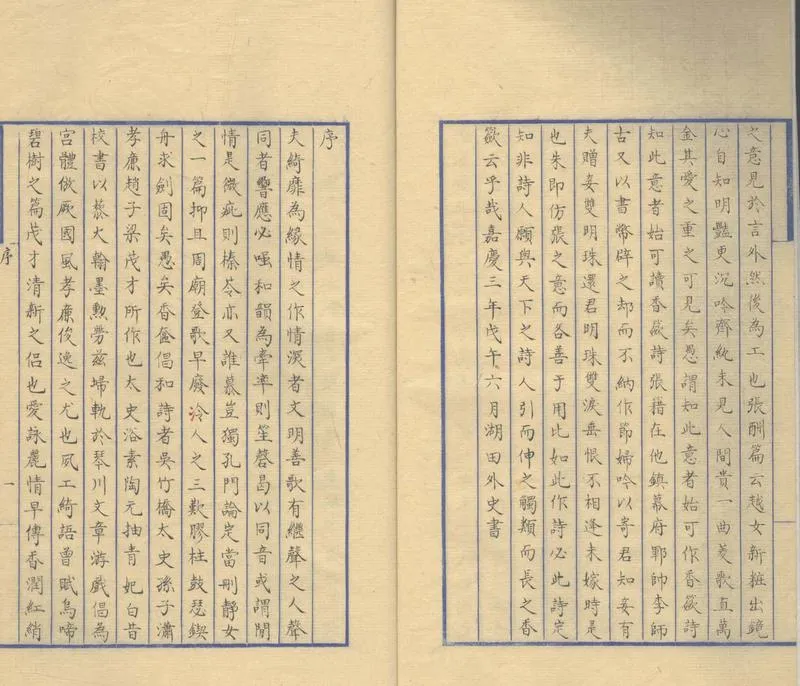 之意見於言外然後為工也張酬篇云越女新粧出鏡
心自知明豔更沉吟齊紈未見人間貴一曲菱歌直萬
金其愛之重之可見矣愚謂知此意者始可作香籨詩
知此意者始可讀香籨詩張籍在他鎮幕府鄆帥李師
古又以書幣辟之却而不納作節婦吟以寄君知妾有
夫贈妾雙明珠還君明珠雙淚垂恨不相逢未嫁時是
也朱即仿張之意而各善于用比如此作詩必此詩定
知非詩人願與天下之詩人引而伸之觸類而長之香
籨云乎哉嘉慶三年戊午六月湖田外史書
序
夫綺靡為緣情之作情深者文明善歌有繼聲之人聲
同者響應必嗤和韻為牽率則笙磬曷以同音或謂閒
情是微疵則榛苓亦又誰慕豈獨孔門論定當刪靜女
之一篇抑且周廟登歌早廢泠人之三歎膠柱鼓瑟鍥
舟求劍固矣愚矣香奩倡和詩者吳竹橋太史孫子瀟
孝廉趙子梁茂才所作也太史浴素陶元抽青妃白昔
校書以藜火翰墨勲勞茲埽軌於琴川文章游戲倡為
宮體倣厥國風孝廉俊逸之尤也夙工綺語曾賦烏啼
碧樹之篇茂才清新之侶也愛詠麗情早傳香潤紅綃
序 一